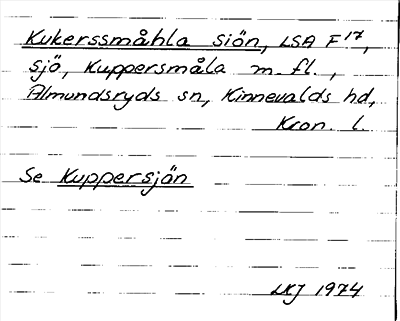 Kukerssmåhla Siön, LSA F17,
sjö, Kuppersmåla m. fl.,
Almundsryds sn, Kinnevalds hd,
Kron. l.
Se Kuppersjön
LKJ 1974